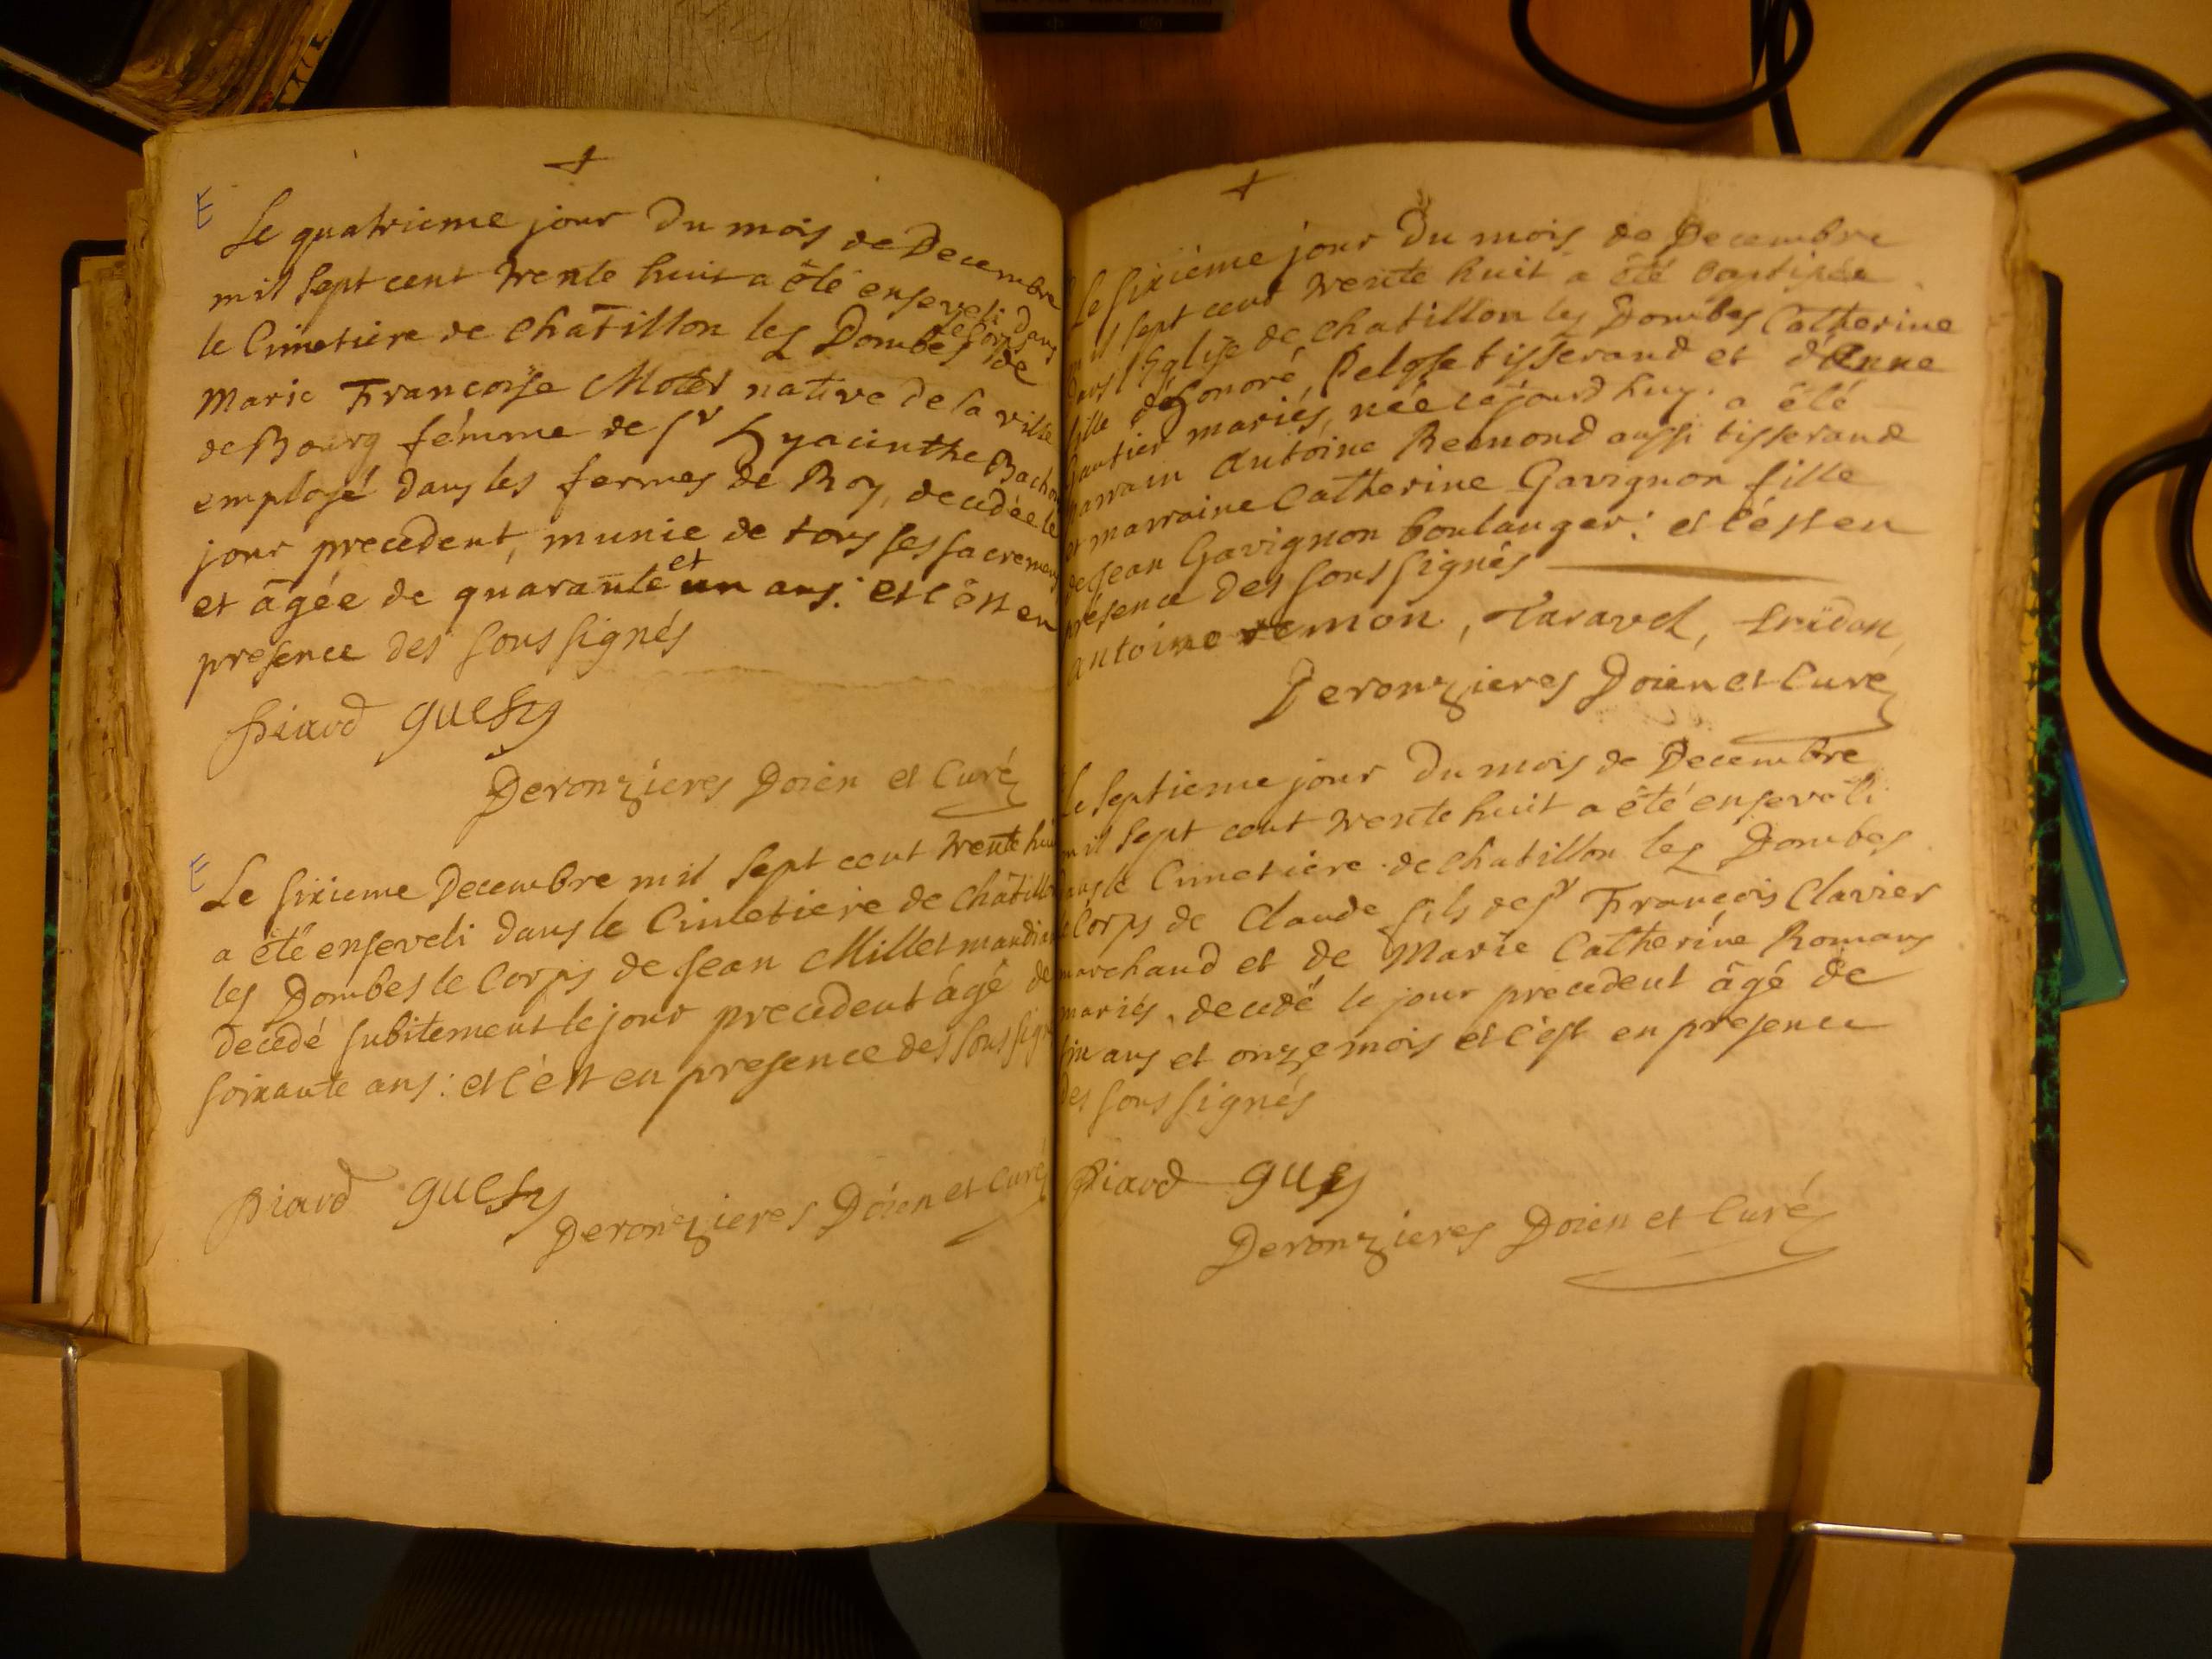 E
Le quatrieme jour du mois de Decembre
mil sept cent trente huit a été enseveli dans
le Cimetiere de Chatillon les Dombes le Corps de
Marie Francoise Motet native de la ville
de Bourg fémme de Sr Hyacinthe Bachon
employé dans les fermes de Roy, decedée le
jour precedent, munie de tous ses sacremens
et âgée de quarante et un ans: et c'est en
presence des soussignés
Piard Guesy
Deronzieres Doien et Curé
E
Le sixieme Decembre mil sept cent trente huit
a été enseveli dans le Cimetiere de Châtillon
les Dombes le Corps de Jean Millet mandiant
decedé subitement le jour precedent âgé de
soixante ans: et c'est en presence des soussignés
Piard Guesy
Deronzieres Doien et Curé
Le sixieme jour du mois de Decembre
mil sept cent trente huit a été baptisée
dans l'Eglise de Chatillon les Dombes Catherine
fille d'Honoré Pelosse tisserand et d'Anne
Gautier mariés, née cejourd'huy. a été
parrain Antoine Remond aussi tisserand
et marraine Catherine Gavignon fille
de Jean Gavignon boulanger: et c'est en
présence des soussignés
antoine remon, Taravel, Fridon,
Deronzieres Doien et Curé
Le septieme jour du mois de Decembre
mil sept cent trente huit a été enseveli
dans le Cimetiere de Chatillon les Dombes
le Corps de Claude fils de Sr François Clavier
marchand et de Marie Catherine Romans
mariés, decedé le jour precedent âgé de
six ans et onze mois et c'est en presence
des soussignés
Piard Guy
Deronzieres Doien et Curé